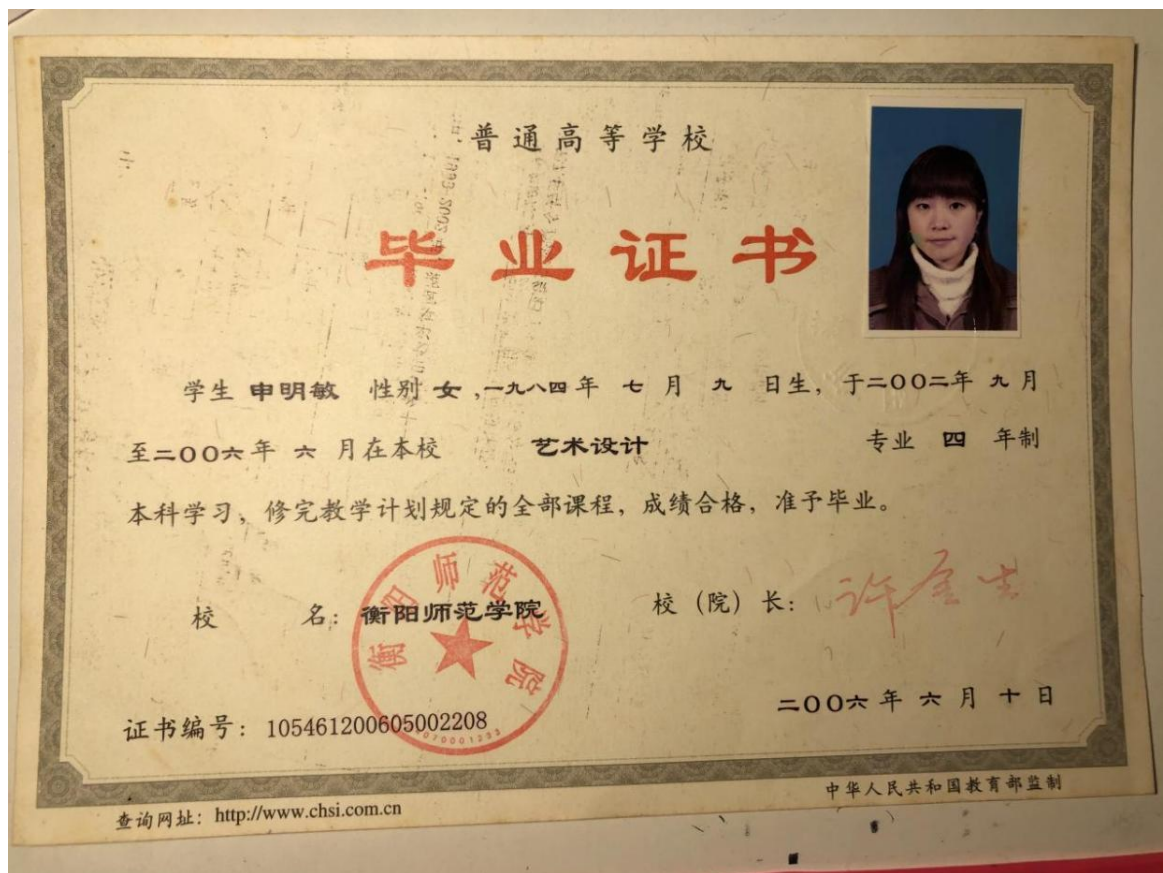 普通高等学校
毕业证书
学生 申明敏 性别 女，一九八四年 七 月 九 日生，于二〇〇二年 九 月
至二〇〇六年 六 月在本校 艺术设计 专业 四 年制
本科学习，修完教学计划规定的全部课程，成绩合格，准予毕业。
衡阳师范学院
校 名：衡阳师范学院 校（院）长：许金生
二〇〇六年 六 月 十 日
证书编号：105461200605002208
中华人民共和国教育部监制
查询网址：http://www.chsi.com.cn